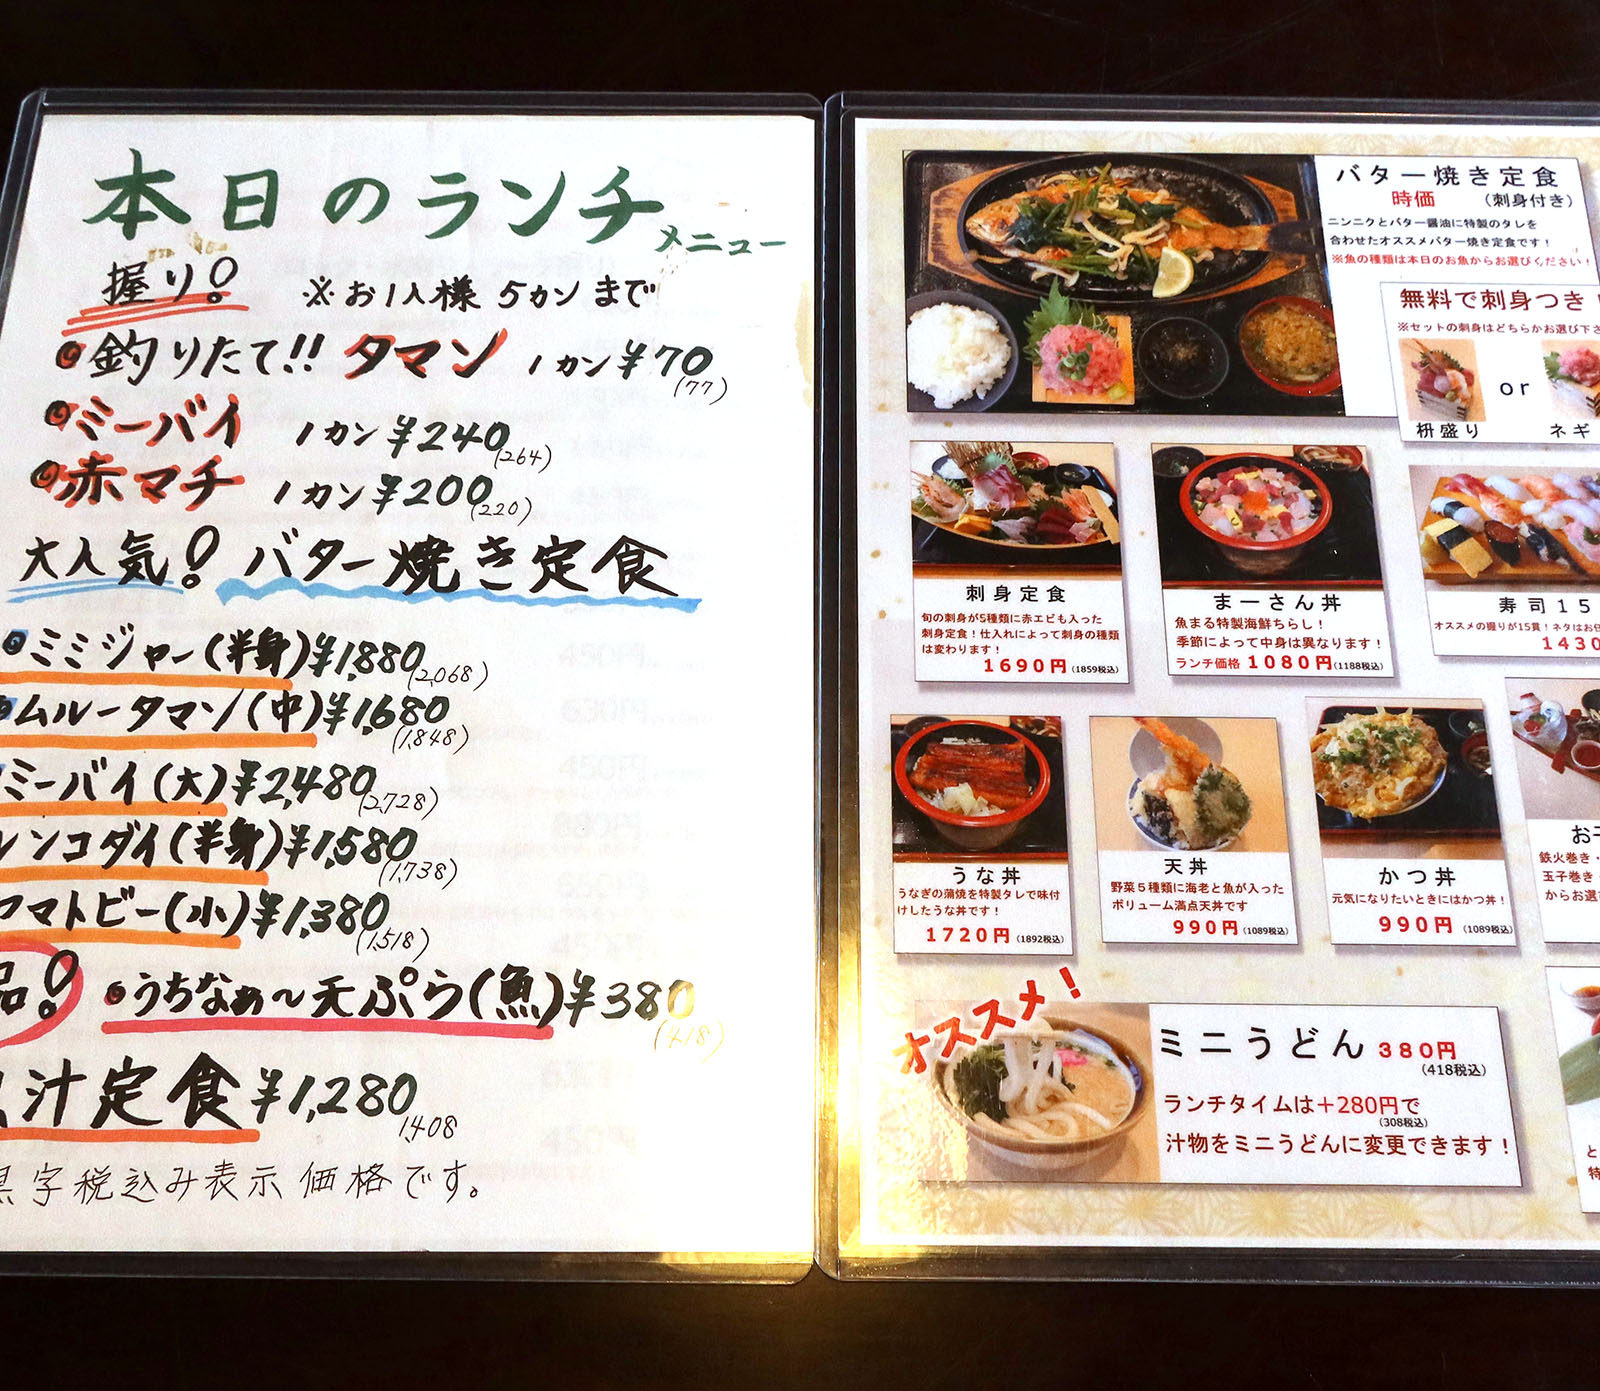 本日のランチ
メニュー
握り! ※お1人様 5カンまで
釣りたて!! タマン 1カン ¥70 (77)
ミーバイ 1カン ¥240 (264)
赤マチ 1カン ¥200 (220)
大人気! バター焼き定食
ミミジャー(半身) ¥1,880 (2,068)
ムルータマン(中) ¥1,680 (1,848)
ミーバイ(大) ¥2,480 (2,728)
レンコダイ(半身) ¥1,580 (1,738)
マトビー(小) ¥1,380 (1,518)
品! うちなぁ〜天ぷら(魚) ¥380 (418)
汁定食 ¥1,280 1,408
黒字税込み表示価格です。
バター焼き定食
時価 (刺身付き)
ニンニクとバター醤油に特製のタレを
合わせたオススメバター焼き定食です!
※魚の種類は本日のお魚からお選びください!
無料で刺身つき!
※セットの刺身はどちらかお選び下さ
or
枡盛り ネギ
刺身定食
旬の刺身が5種類に赤エビも入った
刺身定食!仕入れによって刺身の種類
は変わります!
1690円(1859税込)
まーさん丼
魚まる特製海鮮ちらし!
季節によって中身は異なります!
ランチ価格 1080円(1188税込)
寿司15
オススメの握りが15貫!ネタはお任
1430
うな丼
うなぎの蒲焼を特製タレで味付
けしたうな丼です!
1720円(1892税込)
天丼
野菜5種類に海老と魚が入った
ボリューム満点天丼です
990円(1089税込)
かつ丼
元気になりたいときにはかつ丼!
990円(1089税込)
お子
鉄火巻き・
玉子巻き・
からお選
オススメ!
ミニうどん 380円
(418税込)
ランチタイムは+280円で
(308税込)
汁物をミニうどんに変更できます!
と
特